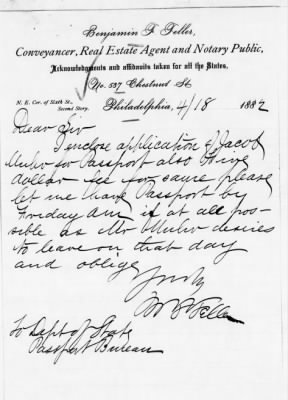 Benjamin F. Teller,
Conveyancer, Real Estate Agent and Notary Public,
Acknowledgments and affidavits taken for all the States,
No. 537 Chestnut St
N. E. Cor. of Sixth St.,
Second Story.
Philadelphia, 4/18 1882
Dear Sir
I enclose application of Jacob
for Passport also Five
dollar fee for same please
let me have Passport by
Friday AM if at all pos-
sible as Mr desires
to leave on that day
and oblige
Yours
Teller
To Dept of State
Passport Bureau